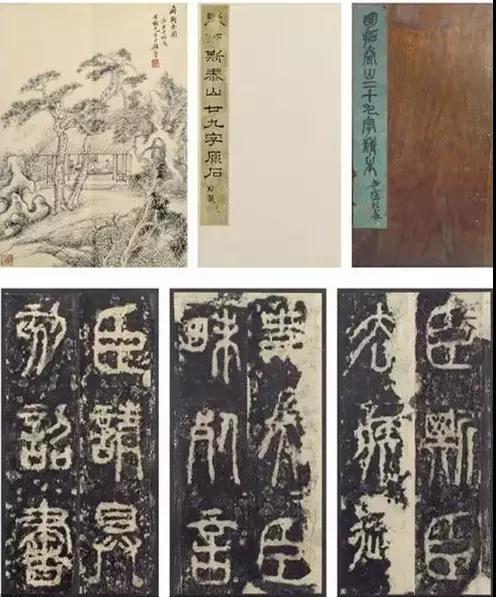 斯泰山廿九字原石
明拓泰山二十九字
臣斯臣
去疾御
史夫臣
昧死言
臣請具
刻詔書